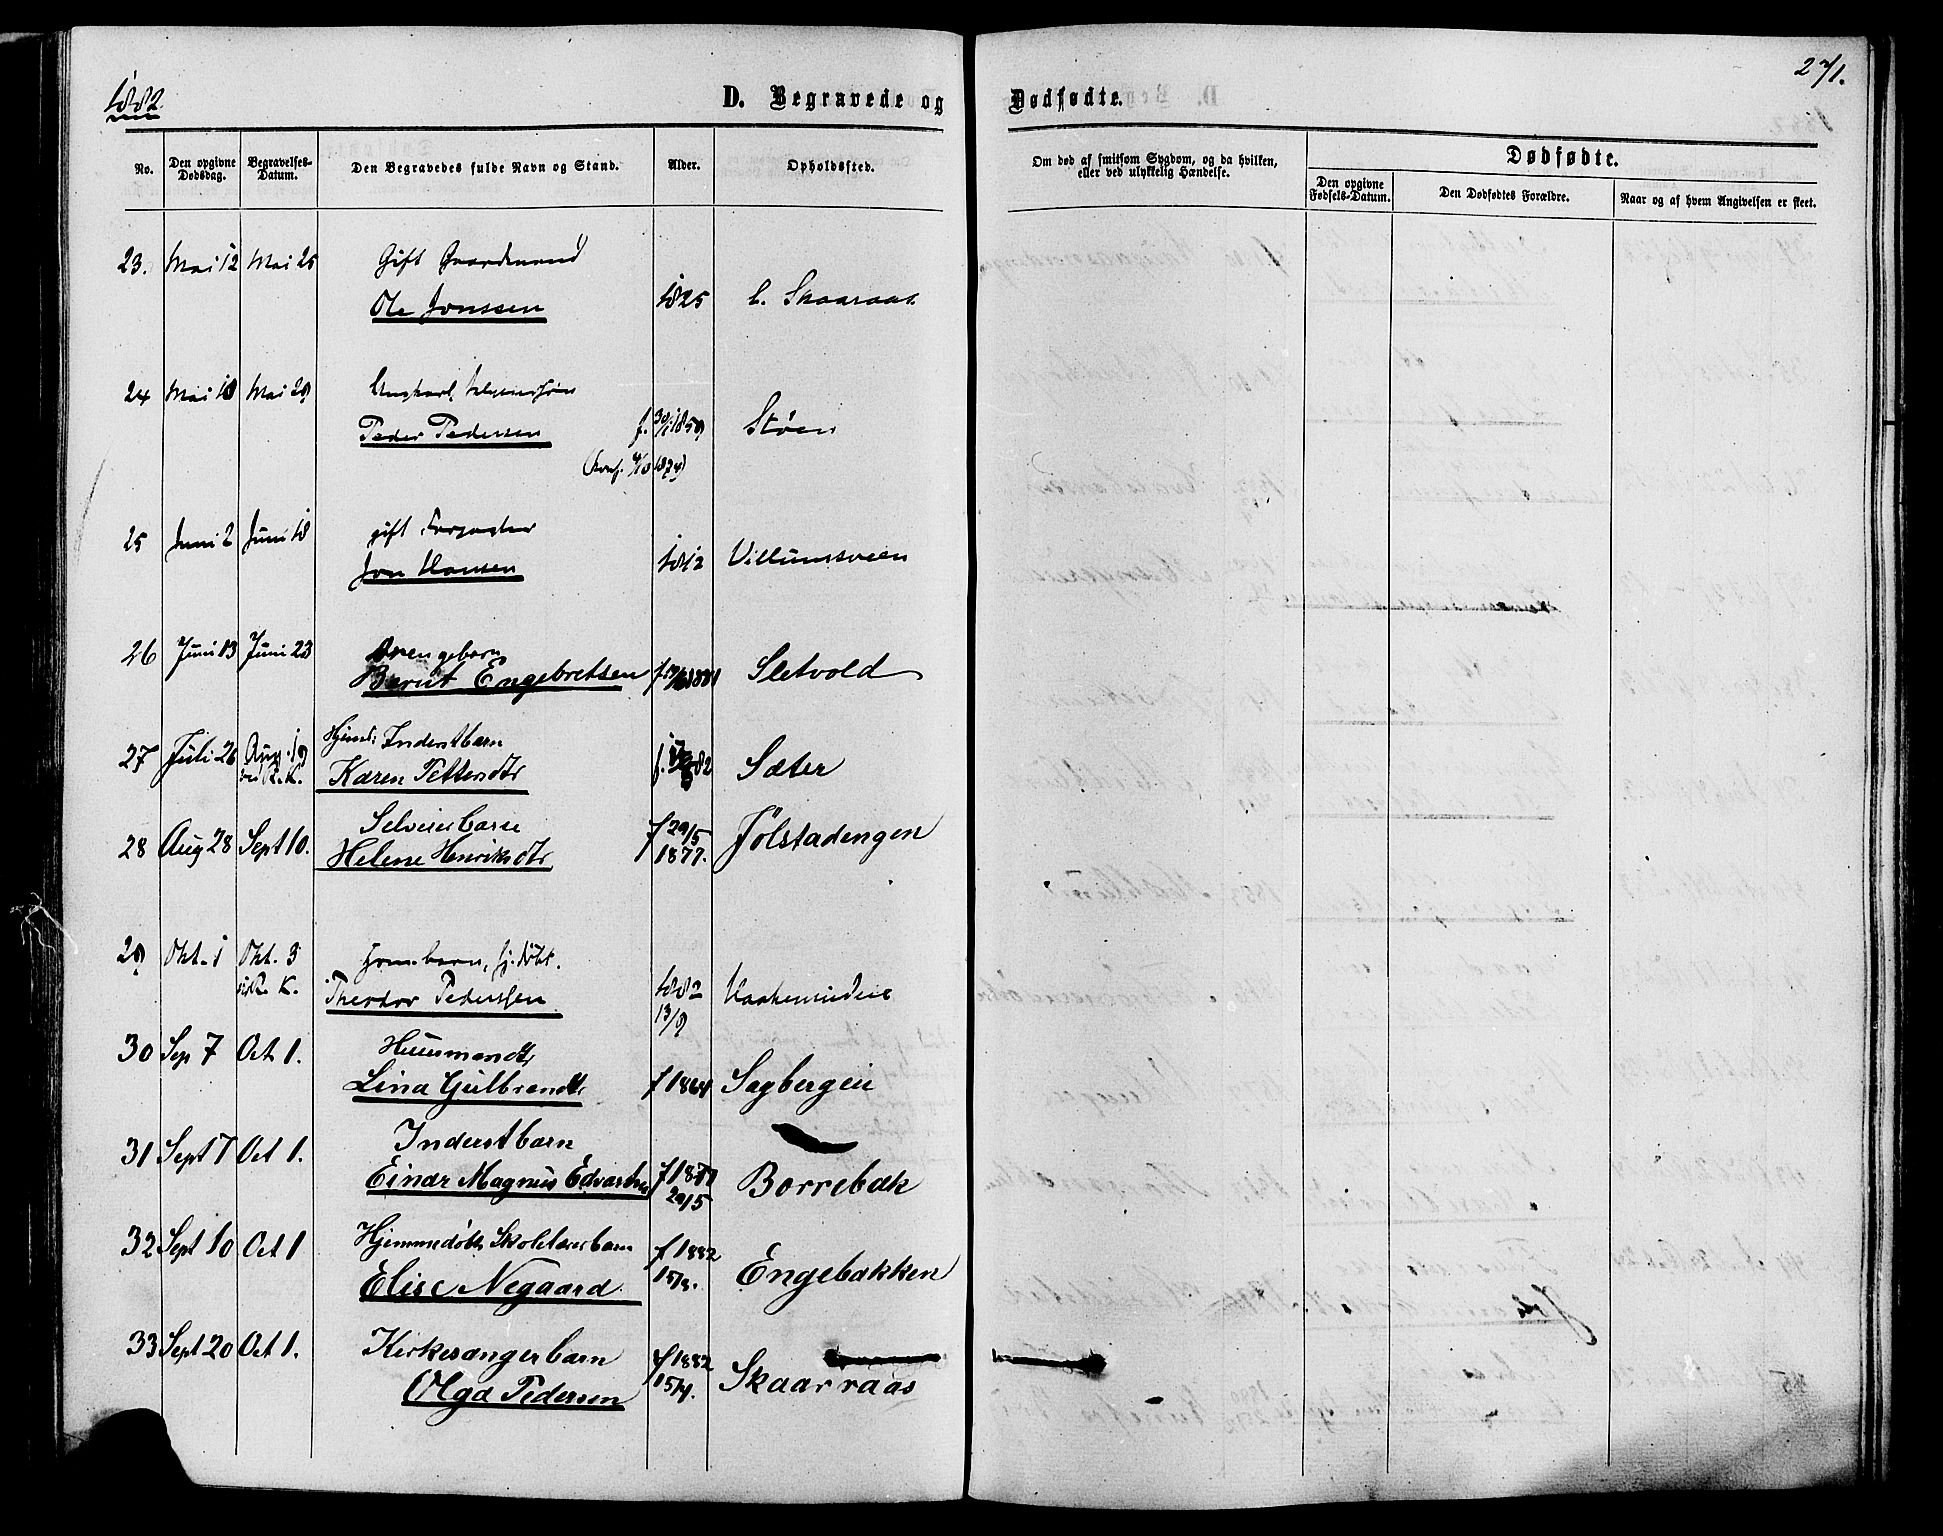 1882
271.
D. Begravede og Dødfødte.
No.
Den opgivne Dødsdag.
Begravelses-Datum.
Den Begravedes fulde Navn og Stand.
Alder.
Opholdssted.
Om død af smitsom Sygdom, og da hvilken, eller ved ulykkelig Hændelse.
Dødfødte.
Den opgivne Fødsels-Datum.
Den Dødfødtes Forældre.
Naar og af hvem Angivelsen er skeet.
23. Mai 12 Mai 25 Gift Gaardmand
Ole Jonssen 1825 Skaaraas
24 Mai 18 Mai 29 Ungkarl,
Peder Pedersen f. 30/1 1859 Støen
(Konf. 4/10 1874)
25 Juni 2 Juni 18 gift
Jon Hansen 1812 Villumsveen
26 Juni 13 Juni 23 Drengebarn
Bernt Engebretsen Sletvold
27 Juli 26 Aug. 19 Hjmd. Inderstbarn
Karen Pettersdtr Sæter
28 Aug 28 Sept 10. Selveierbarn f 29/5
Helene Henriksdtr 1877. Jølstadengen
29 Okt. 1 Okt. 3 hj. døbt.
Theodor Pederssen 1882
13/9
30 Sep 7 Oct 1. Huusmandsdtr
Lina Gulbrandsdtr f 1864 Sagbergeie
31 Sept 7 Oct 1. Inderstbarn
Einar Magnus Edvardsen 29/5 Borrebæk
32 Sept 10 Oct 1 Hjemmedøbt Skolelærerbarn f 1882
Elise Negaard Engebakken
33 Sept 20 Oct 1. Kirkesangerbarn f 1882
Olga Pedersen 15/4. Skaarraas